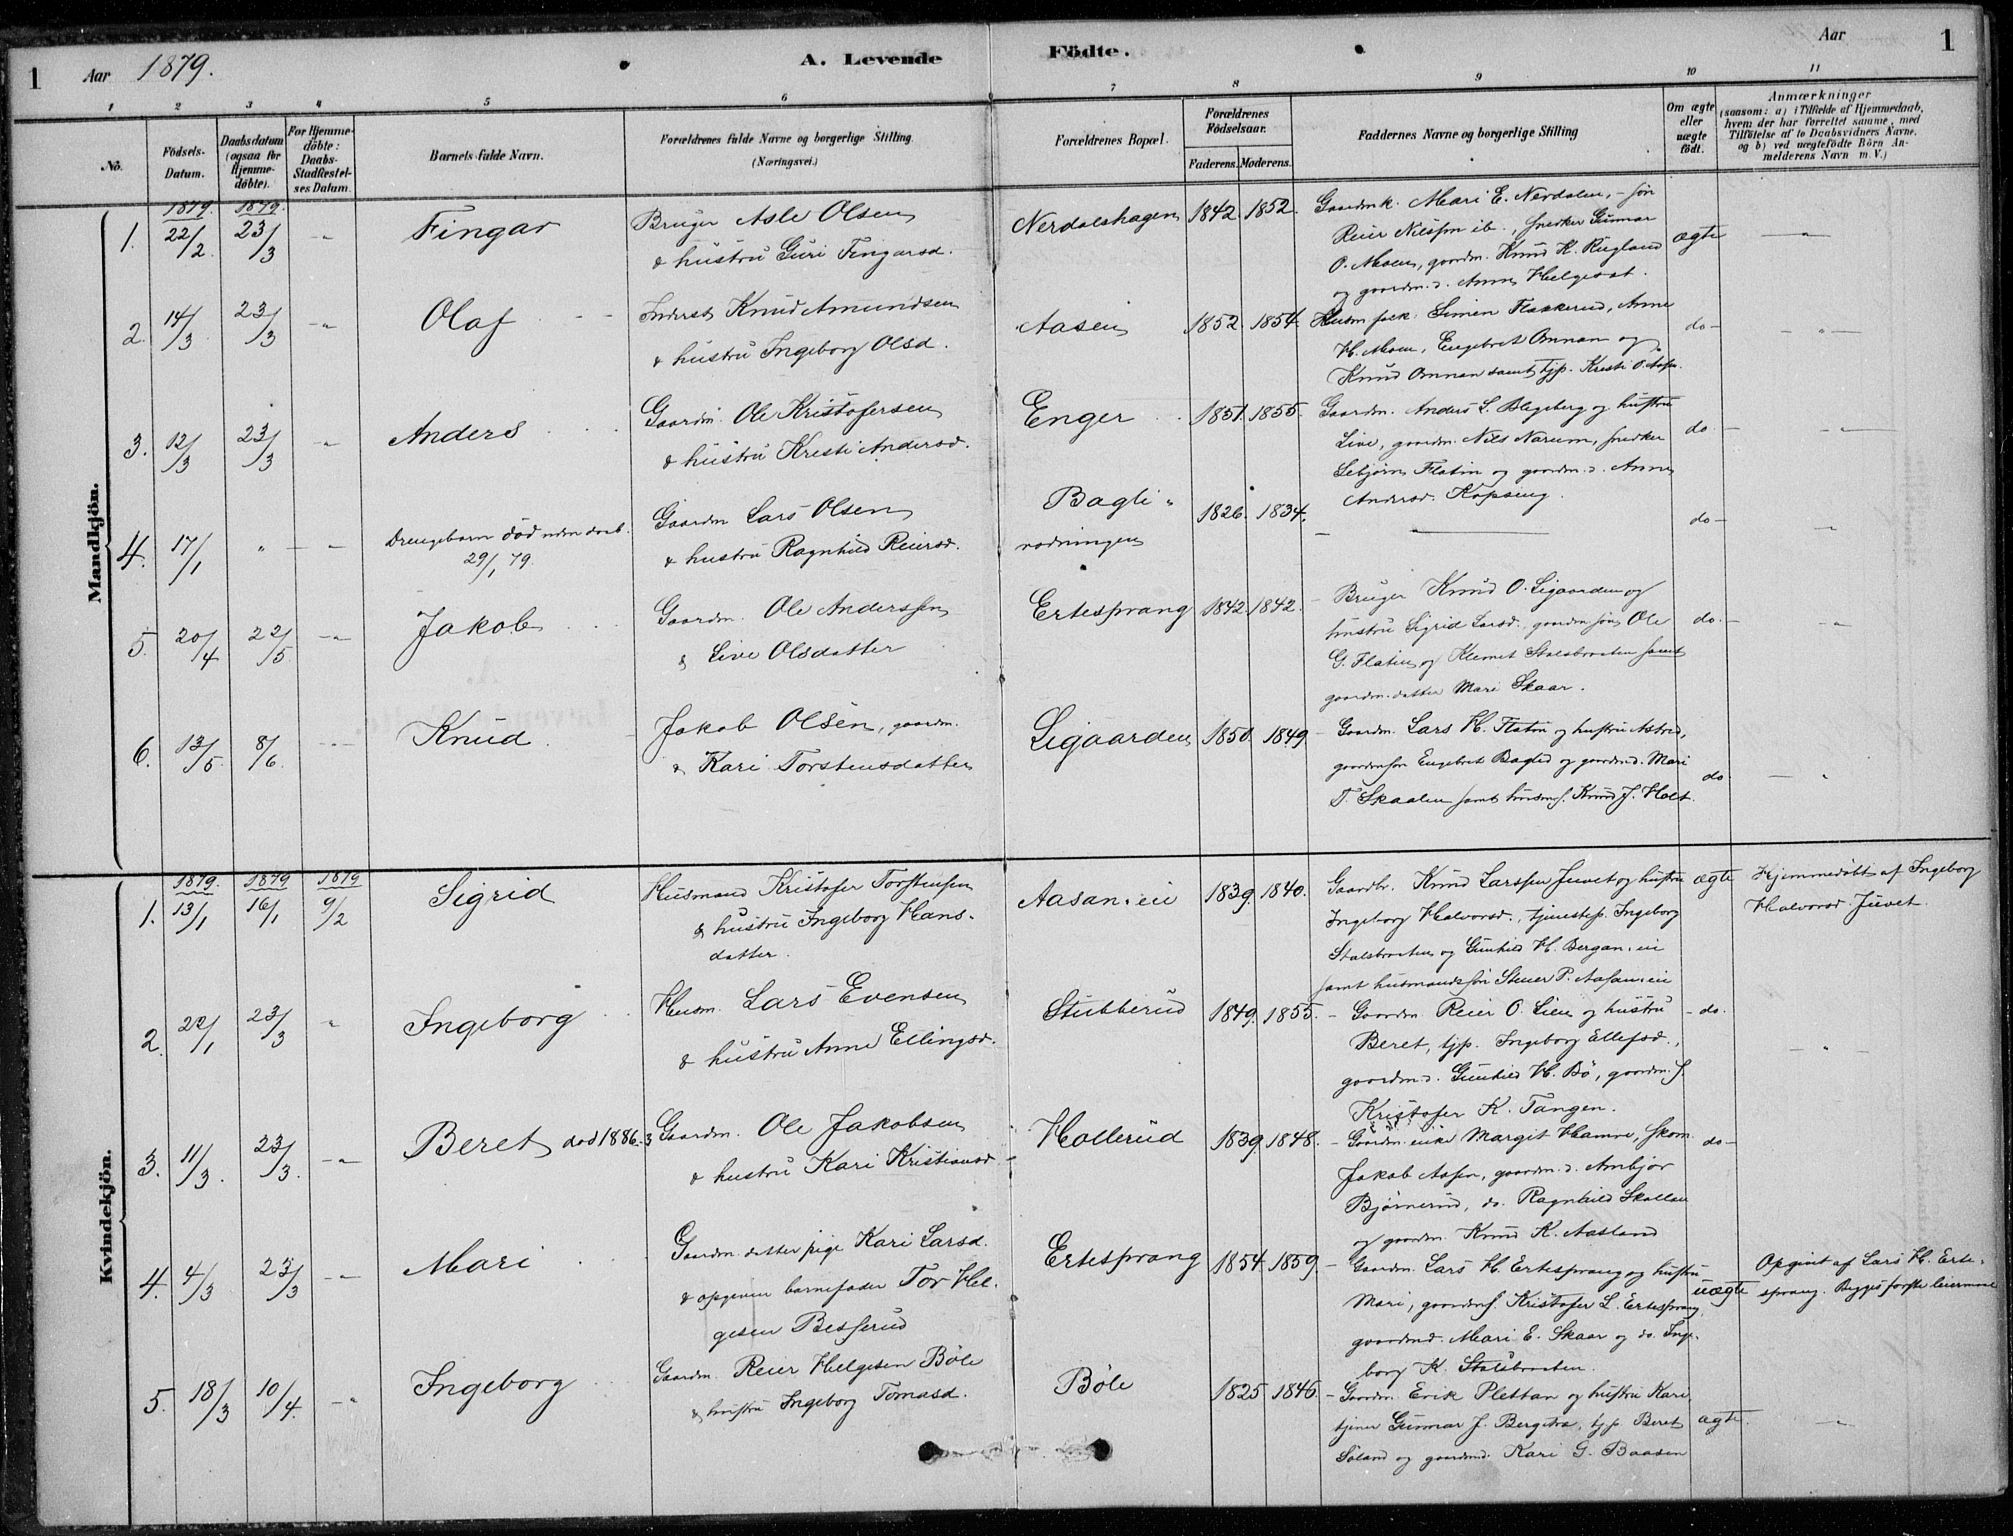 1 Aar 1879. A. Levende Födte. Aar 1
1 2 3 4 5 6 7 8 9 10 11
No. Födsels-Datum. Daabsdatum (ogsaa for Hjemmedøbte). For Hjemmedöbte: Daabs-Stadfæstelses Datum. Barnets fulde Navn. Forældrenes fulde Navne og borgerlige Stilling. (Næringsvei.) Forældrenes Bopæl. Forældrenes Födselsaar. Faderens. Moderens. Faddernes Navne og borgerlige Stilling Om ægte eller uægte födt. Anmærkninger (saasom: a) i Tilfælde af Hjemmedaab, hvem der har forrettet samme, med Tilföielse af to Daabsvidners Navne, og b) ved uægtefödte Börn Anmelderens Navn m. V.)
Mandkjön.
1879. 1879.
1. 22/2 23/3 -"- Fingar Bruger Asle Olsen Nerdalshagen 1842. 1852. Gaardmk. Mari E. Nerdalen, - søn
& hustru Guri Fingarsd. Reier Nilssen ib., snedker Gunnar ægte -"-
O. Moen, gaardm. Knud K. Rugland
og gaardm.d. Anne Helgeset.
2. 14/3 23/3 -"- Olaf Inderst Knud Amundsen Aasen 1852. 1854. Husm.folk. Simen Flaskerud, Anne do- -"-
& hustru Ingeborg Olsd. H. Moen, Engebret Omnan og
Knud Omnan samt tjp. Kristi O. Aasen.
3. 12/3 23/3 -"- Anders Gaardm. Ole Kristofersen Enger 1851. 1855. Gaardm. Anders L. Blegeberg og hustru do. -"-
& hustru Kristi Andersd. Live, gaardm. Nils Narum, snedker
Lebjørn Flatin og gaardm.d. Anne
Andersd. Kopseng.
4. 17/1 " - - Drengebarn død uden daab. Gaardm Lars Olsen Bagli- 1826. 1834. do- -"-
29/1 79. & hustru Ragnhild Reiersd. rødningen
5. 20/4 22/5 -"- Jakob Gaardm. Ole Anderssen Ertesprang 1842. 1842. Bruger Knud O. Ligaarden og
& Live Olsdatter hustru Sigrid Larsd. gaardm.søn Ole do. -"-
G. Flatin og Klemet Stalsbraaten samt
gaardm.datter Mari Skaar.
6. 13/5 8/6. Knud Jakob Olsen, gaardm. Ligaarden 1850. 1849 - Gaardm. Lars H. Flatin og hustru Astrid,
& Kari Torstensdatter gaardmsøn Engebret Baglid og gaardmd. Mari do -"-
T. Skaalen samt husms. Knud J. Holt.
Kvindekjön.
1879. 1879 1879
1. 13/1 16/1 9/2 Sigrid Husmand Kristofer Torstensen Aasan.eie 1839. 1840. Gaardbr. Knud Larssen Juvet og hustru ægte Hjemmedøbt af Ingeborg
& hustru Ingeborg Hans- Ingeborg Halvorsd., tjenestep. Ingeborg Halvorsd. Juvet.
datter. Stalsbraaten og Gunhild H. Bergan.eie
samt husmandssøn Stener P. Aasan.eie
2. 22/1 23/3 " Ingeborg Husm. Lars Evensen Stubberud 1849. 1855. - Gaardm Reier O. Lien og hustru - do.
& hustru Anne Ellingsd. Beret, tjp. Ingeborg Ellefsd., -"-
gaardmd. Gunhild H. Bø, gaardm.s.
Kristofer K. Tangen.
3. 11/3. 23/3. -"- Beret død 1886. Gaardm. Ole Jakobsen Hollerud 1839. 1848. - Gaardm.enke Margit Hamre, skom. do-
& hustru Kari Kristiansd Jakob Aasen, gaardm.d. Ambjør
Bjørnerud, do. Ragnhild Skollan
og gaardm. Knud K. Aasland
4. 4/3 23/3 -"- Mari Gaardm.datter pige Kari Larsd. Ertesprang 1854. 1859. - Gaardm. Lars H. Ertesprang og hustru Opgivet af Lars H. Erte-
& opgiven barnefader Tor Hel- Mari, gaardms. Kristofer L. Ertesprang, uægte sprang. Begges første leiermaal
gesen Besserud gaardmd. Mari E. Skaar og do. Inge-
borg K. Stalsbraaten.
5. 18/3 10/4. -"- Ingeborg Gaardm. Reier Helgesen Bøle Bøle 1825 1846. - Gaardm. Erik Plettan og hustru Kari,
& hustru Ingeborg Tomasd. tjener Gunnar J. Bergetræ, tjp Beret ægte. -"-
Søland og gaardmd. Kari G. Baasen